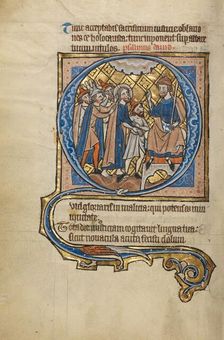 Tunc acceptabis sacrificium iusticie oblatio
nes et holocausta: tunc imponent super altare
tuum uitulos. psalmus dauid
Quid gloriaris in malicia: qui potens es in
iniquitate.
Tota die iniusticiam cogitauit lingua tua:
sicut nouacula acuta fecisti dolum